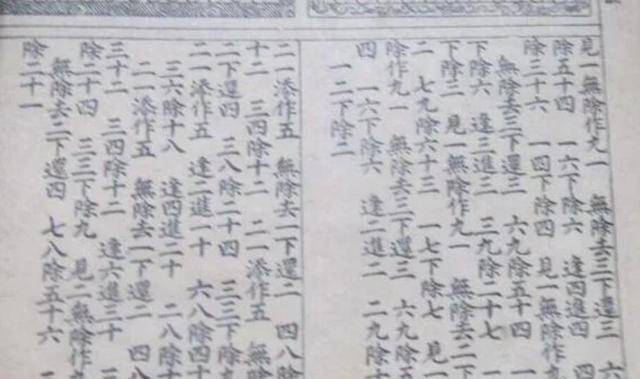 見一無除作九一 無除去三下還三 六
除五十四 一六下除六 逢四進四 四
除三十六 一四下除四 見一無除作九
無除去三下還三 六九除五十四
下除六 逢三進三 三九除二十七 一
下除三 見一無除作九一 無除去二下
二 七九除六十三 一七下除七 見一
除作九一 無除去三下還三 六九除五
四 一六下除六 逢二進二 二九除十
一二下除二
二一添作五 無除去一下還二 四八除
十二 三四除十二 二一添作五 無除
二下還四 三八除二十四 三三下除九
二一添作五 逢二進一十 六八除四十
三六除十八 逢四進二十 二八除十
二一添作五 無除去一下還二 四八
三十二 三四除十二 逢六進三十
除二十四 三三下除九 見二無除作九
無除去二下還四 七八除五十六 二
除二十一